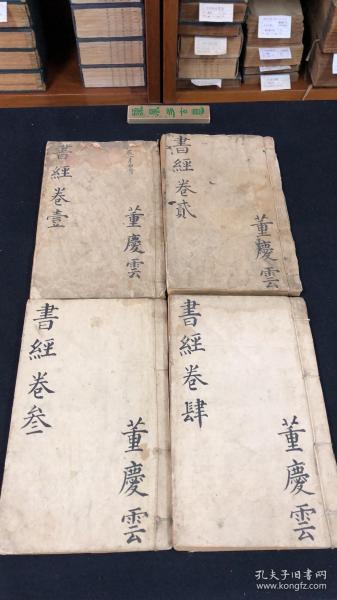 書經卷壹
董慶雲
書經卷貳
董慶雲
書經卷叁
董慶雲
書經卷肆
董慶雲
孔夫子旧书网